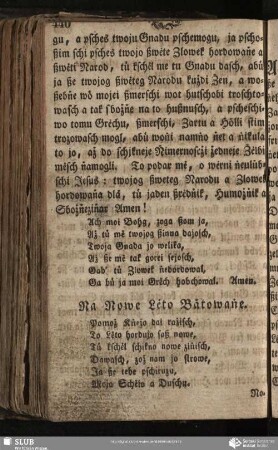 140
gu, a psches twoju Gnadu pschemogu, ja pscho-
ſtim ſchi psches twojo ſwěte Zlowek hordowańe a
ſwěti Narod, tů kſchěl me tu Gnadu daſch, abů
ja ſe twojog ſwěteg Narodu kuždi Zen, a wo-
ſebńe wó mojei ſmerſchi wot hutſchobi troſchto-
waſch a tak ſbožńe na to huſtnuſch, a pſcheſchi-
wo tomu Grěchu, ſmerſchi, Zartu a Hölli ſtim
trozowaſch mogl, abů woni namńo ńet a ńikula
to jo, až do ſchiſkneje Nimernoſczi žedneje Zělbi
měſch ńamogli. To podar mě, o wěrni neulüb-
ſchi Jeſus: twojog ſwěteg Narodu a Zlowek
hordowańa dlá, tů jaden ſrědńik, Humožńik a
Sbožńeziñar Amen!
Ach moi Bohg, zoga ſtom ja,
Až tů mě twojog ſinna dajoſch,
Twoja Gnada jo welika,
Až ſe mě tak gorei ſejoſch,
Gab' tů Zlowek ńebordowal,
Ga bů ja moi Grěch hobchowal. Amen.
Na Nowe Lěto Bätowańe.
Pomož Kńejo dai ražiſch,
To Lěto hordujo ſoß nowe,
Tů kſchěl ſchikno nowe zińiſch,
Dawaſch, zož nam jo ſtrowe,
Ja ſe tebe pſchiruzu,
Mojo Schělo a Duſchu.
No-
SLUB